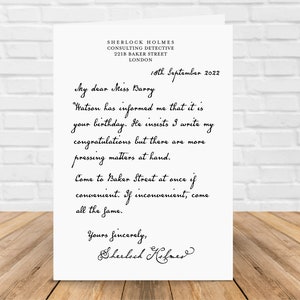 SHERLOCK HOLMES
CONSULTING DETECTIVE
221B BAKER STREET
LONDON
18th September 2022
My dear Miss Barry
Watson has informed me that it is
your birthday. He insists I write my
congratulations but there are more
pressing matters at hand.
Come to Baker Street at once if
convenient. If inconvenient, come
all the same.
Yours sincerely,
Sherlock Holmes